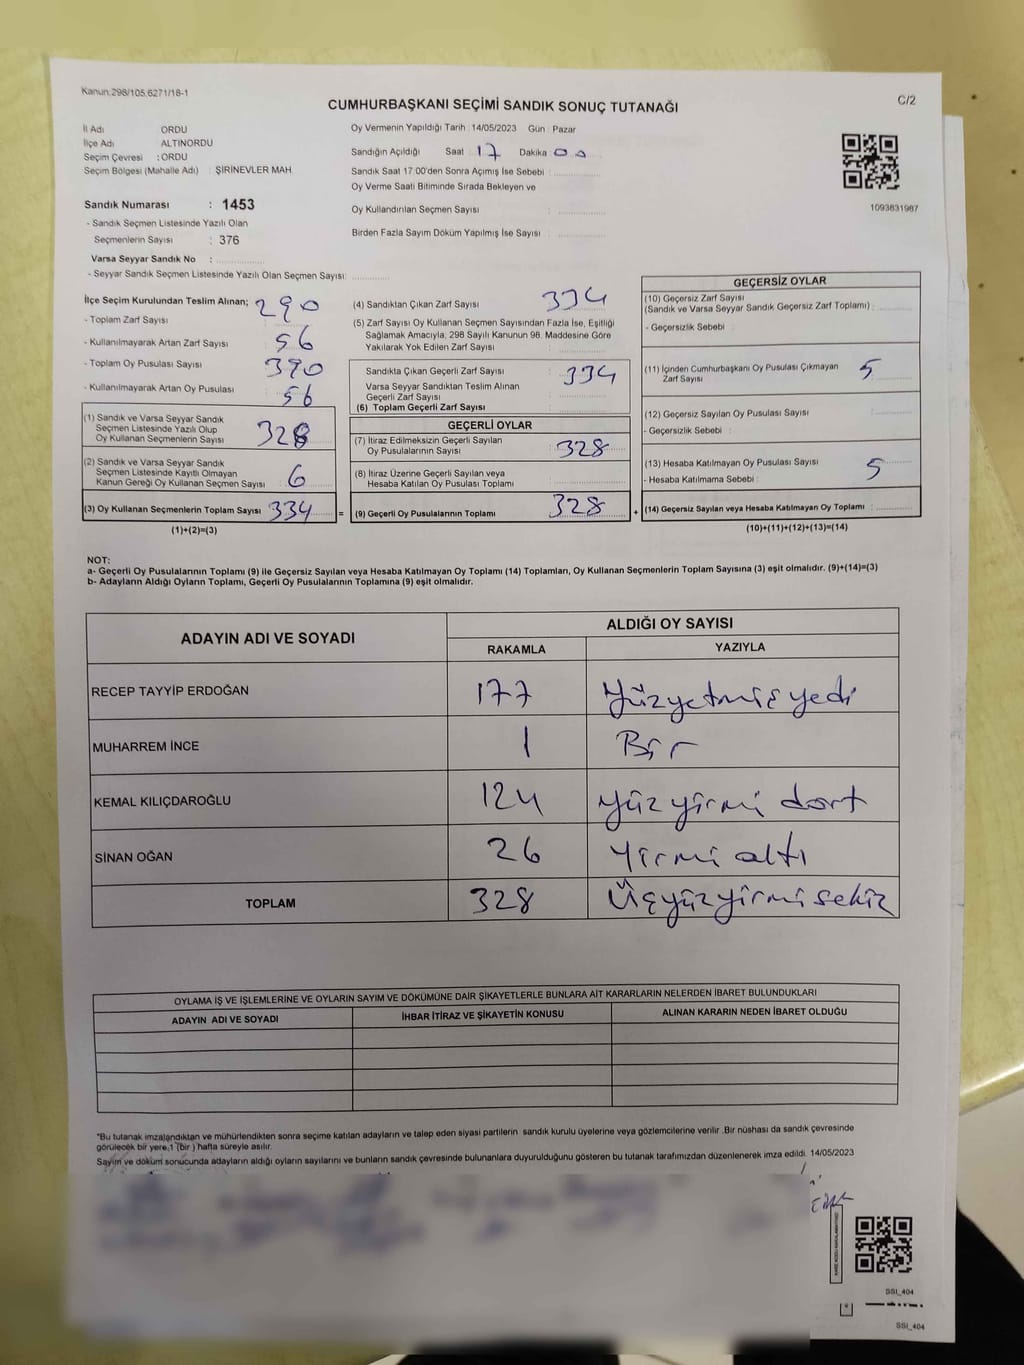 Kanun:298/105,6271/18-1
C/2
CUMHURBAŞKANI SEÇİMİ SANDIK SONUÇ TUTANAĞI
İl Adı ORDU
İlçe Adı ALTINORDU
Seçim Çevresi : ORDU
Seçim Bölgesi (Mahalle Adı) : ŞİRİNEVLER MAH.
Sandık Numarası : 1453
- Sandık Seçmen Listesinde Yazılı Olan
Seçmenlerin Sayısı : 376
Varsa Seyyar Sandık No :
- Seyyar Sandık Seçmen Listesinde Yazılı Olan Seçmen Sayısı:
Oy Vermenin Yapıldığı Tarih : 14/05/2023 Gün : Pazar
Sandığın Açıldığı Saat : 17 Dakika : 00
Sandık Saat 17:00'den Sonra Açımış İse Sebebi :
Oy Verme Saati Bitiminde Sırada Bekleyen ve
Oy Kullandırılan Seçmen Sayısı :
Birden Fazla Sayım Döküm Yapılmış İse Sayısı :
1093831987
İlçe Seçim Kurulundan Teslim Alınan;
- Toplam Zarf Sayısı : 290
- Kullanılmayarak Artan Zarf Sayısı : 56
- Toplam Oy Pusulası Sayısı : 390
- Kullanılmayarak Artan Oy Pusulası : 56
(1) Sandık ve Varsa Seyyar Sandık
Seçmen Listesinde Yazılı Olup
Oy Kullanan Seçmenlerin Sayısı : 328
(2) Sandık ve Varsa Seyyar Sandık
Seçmen Listesinde Kayıtlı Olmayan
Kanun Gereği Oy Kullanan Seçmen Sayısı : 6
(3) Oy Kullanan Seçmenlerin Toplam Sayısı : 334
(1)+(2)=(3)
=
(4) Sandıktan Çıkan Zarf Sayısı : 334
(5) Zarf Sayısı Oy Kullanan Seçmen Sayısından Fazla İse, Eşitliği
Sağlamak Amacıyla, 298 Sayılı Kanunun 98. Maddesine Göre
Yakılarak Yok Edilen Zarf Sayısı :
Sandıkta Çıkan Geçerli Zarf Sayısı : 334
Varsa Seyyar Sandıktan Teslim Alınan
Geçerli Zarf Sayısı :
(6) Toplam Geçerli Zarf Sayısı :
GEÇERLİ OYLAR
(7) İtiraz Edilmeksizin Geçerli Sayılan
Oy Pusulalarının Sayısı : 328
(8) İtiraz Üzerine Geçerli Sayılan veya
Hesaba Katılan Oy Pusulası Toplamı :
(9) Geçerli Oy Pusulalarının Toplamı : 328
+
GEÇERSİZ OYLAR
(10) Geçersiz Zarf Sayısı
(Sandık ve Varsa Seyyar Sandık Geçersiz Zarf Toplamı) :
- Geçersizlik Sebebi :
(11) İçinden Cumhurbaşkanı Oy Pusulası Çıkmayan
Zarf Sayısı : 5
(12) Geçersiz Sayılan Oy Pusulası Sayısı :
- Geçersizlik Sebebi :
(13) Hesaba Katılmayan Oy Pusulası Sayısı : 5
- Hesaba Katılmama Sebebi :
(14) Geçersiz Sayılan veya Hesaba Katılmayan Oy Toplamı :
(10)+(11)+(12)+(13)=(14)
NOT:
a- Geçerli Oy Pusulalarının Toplamı (9) ile Geçersiz Sayılan veya Hesaba Katılmayan Oy Toplamı (14) Toplamları, Oy Kullanan Seçmenlerin Toplam Sayısına (3) eşit olmalıdır. (9)+(14)=(3)
b- Adayların Aldığı Oyların Toplamı, Geçerli Oy Pusulalarının Toplamına (9) eşit olmalıdır.
ADAYIN ADI VE SOYADI ALDIĞI OY SAYISI
RAKAMLA YAZIYLA
RECEP TAYYİP ERDOĞAN 177 Yüzyetmiş yedi
MUHARREM İNCE 1 Bir
KEMAL KILIÇDAROĞLU 124 Yüz yirmi dort
SİNAN OĞAN 26 Yirmi altı
TOPLAM 328 Üçyüzyirmisekiz
OYLAMA İŞ VE İŞLEMLERİNE VE OYLARIN SAYIM VE DÖKÜMÜNE DAİR ŞİKAYETLERLE BUNLARA AİT KARARLARIN NELERDEN İBARET BULUNDUKLARI
ADAYIN ADI VE SOYADI İHBAR İTİRAZ VE ŞİKAYETİN KONUSU ALINAN KARARIN NEDEN İBARET OLDUĞU
*Bu tutanak imzalandıktan ve mühürlendikten sonra seçime katılan adayların ve talep eden siyasi partilerin sandık kurulu üyelerine veya gözlemcilerine verilir .Bir nüshası da sandık çevresinde
görülecek bir yere,1 (bir ) hafta süreyle asılır.
Sayım ve döküm sonucunda adayların aldığı oyların sayılarını ve bunların sandık çevresinde bulunanlara duyurulduğunu gösteren bu tutanak tarafımızdan düzenlenerek imza edildi. 14/05/2023
SSI_404
SSI_404